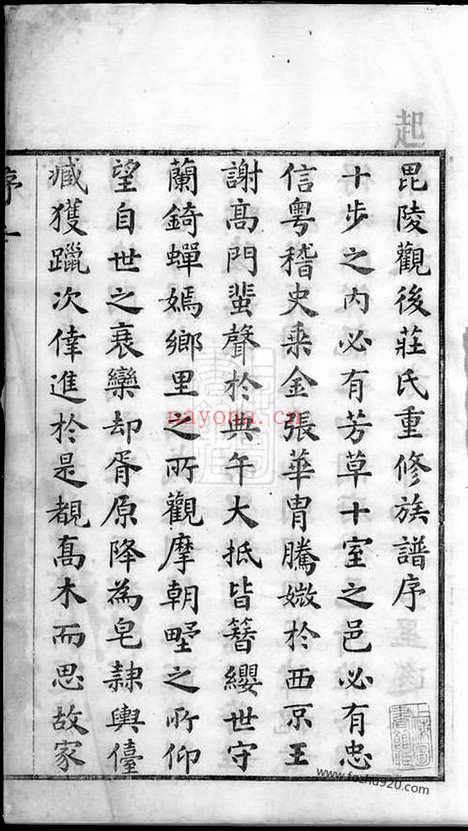 毘陵觀後莊氏重修族譜序
十步之內必有芳草十室之邑必有忠
信粵稽史乘金張華胄騰媺於西京王
謝高門蜚聲於典午大抵皆簪纓世守
蘭錡蟬嫣鄉里之所觀摩朝野之所仰
望自世之衰欒却胥原降為皂隷輿儓
臧獲躐次倖進於是覩喬木而思故家
序 一
起
nayona.cn
www.fozhu920.com